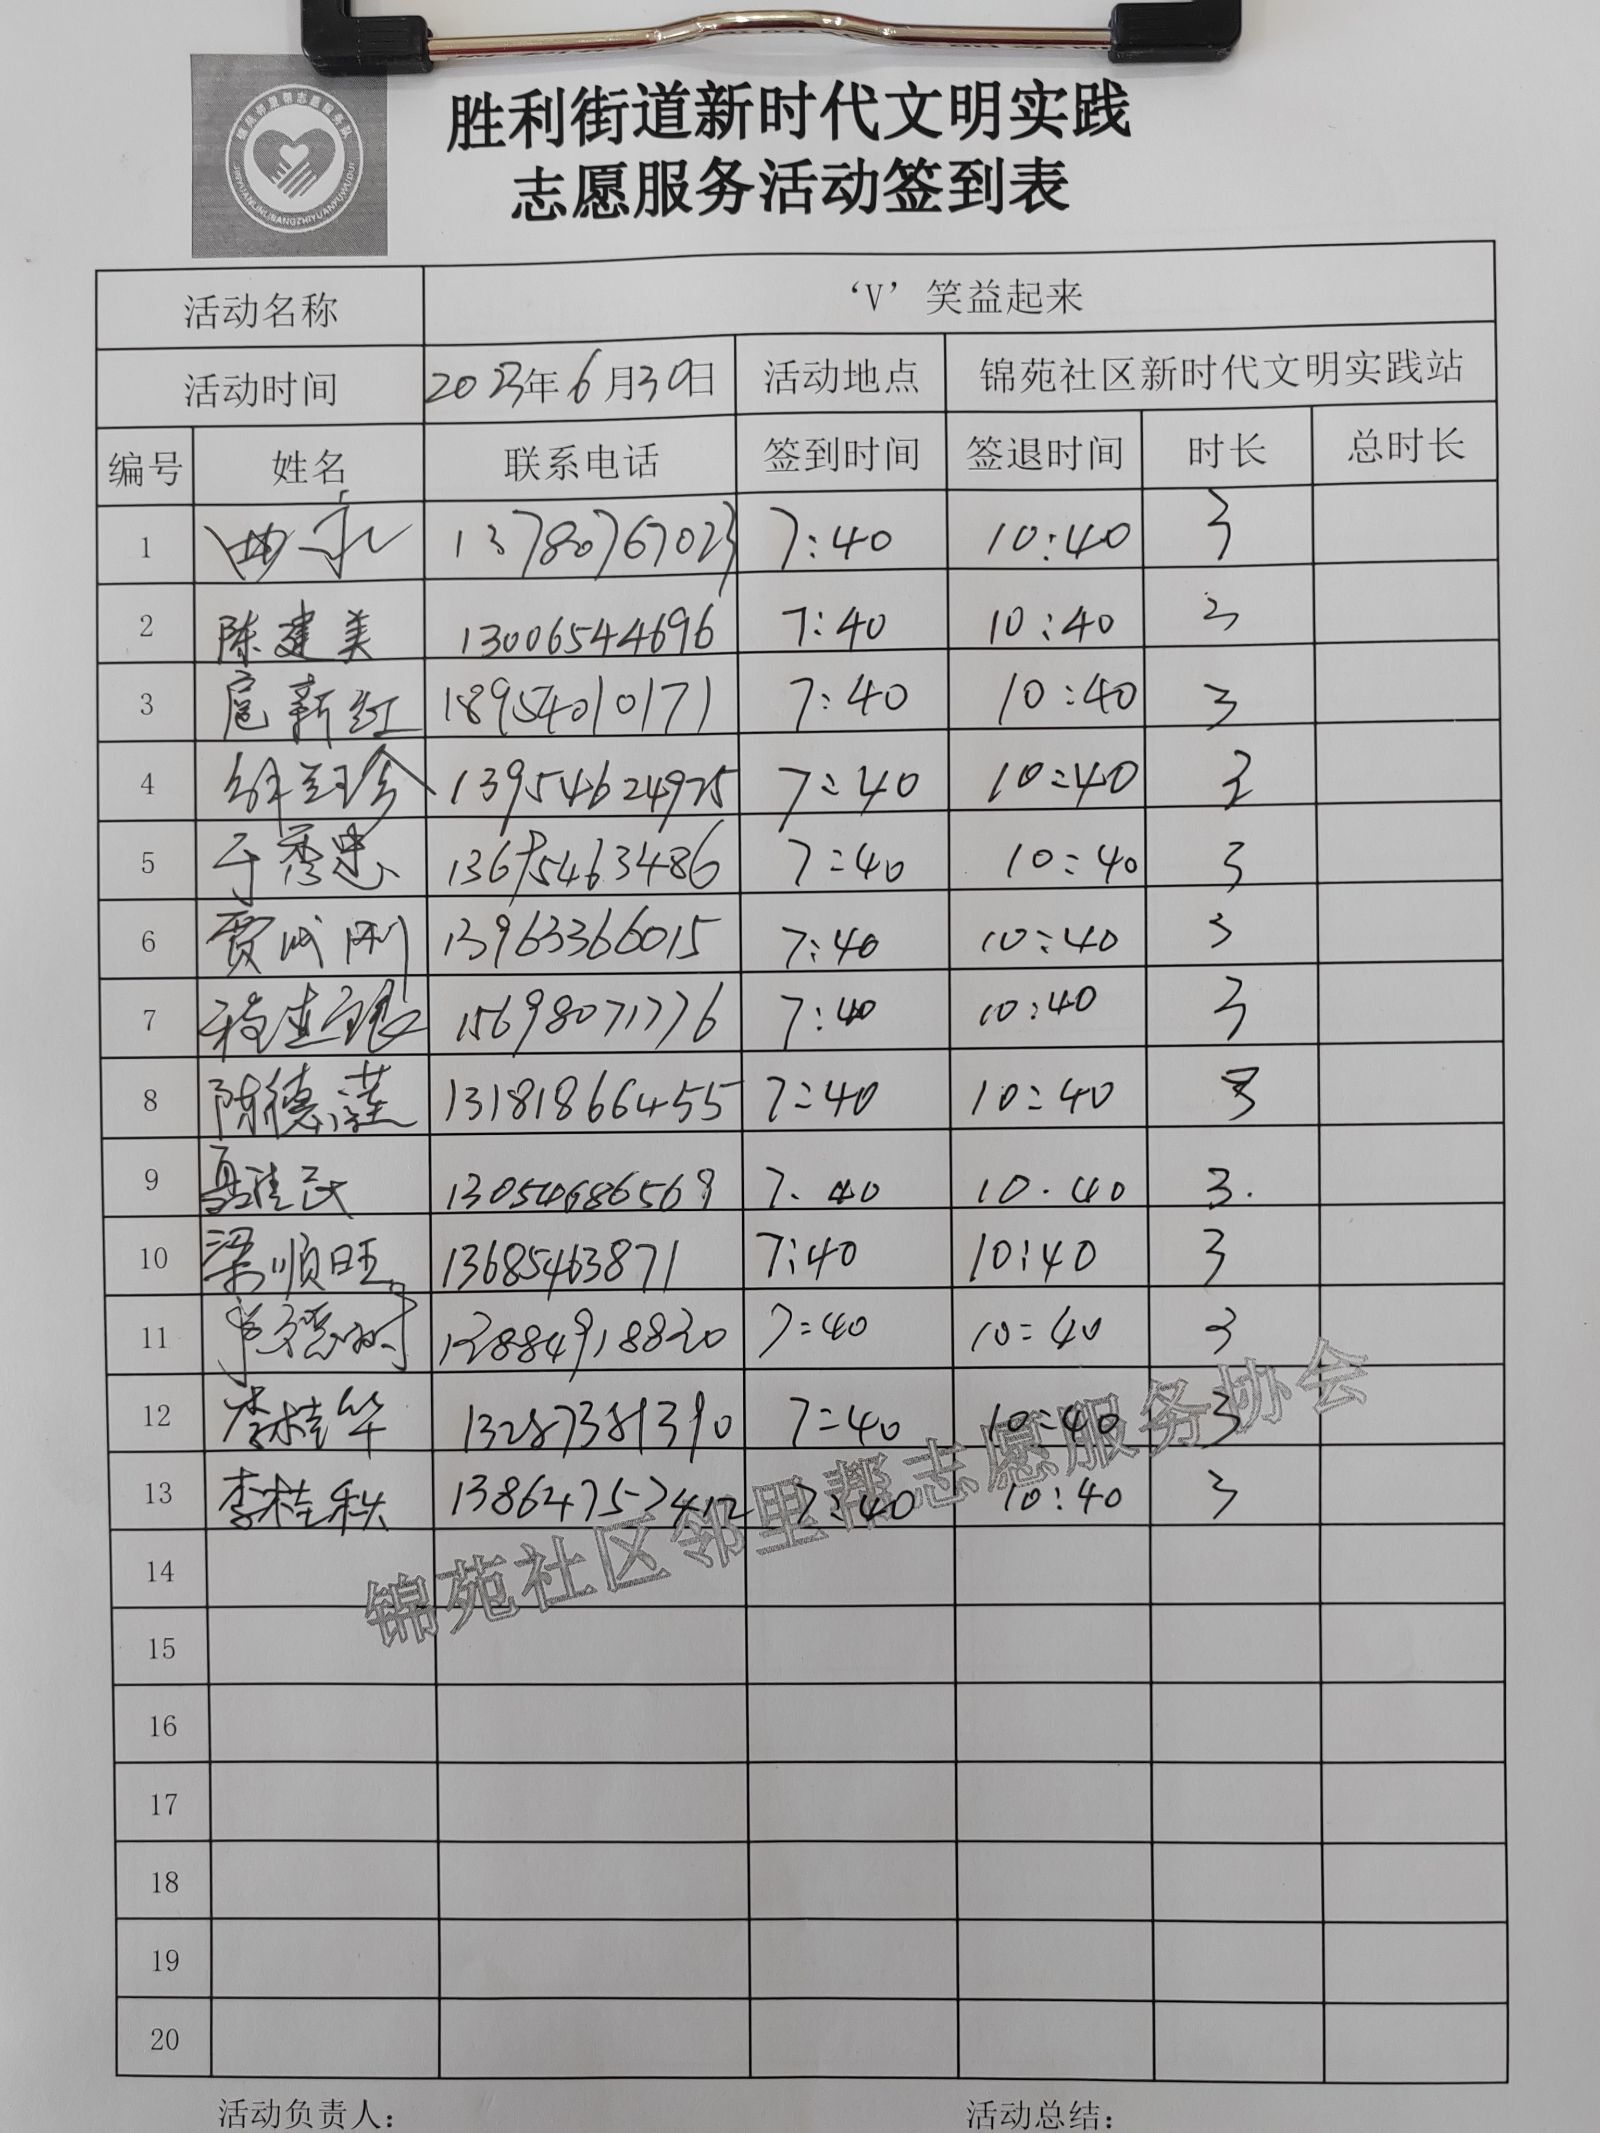 锦苑邻里帮志愿服务队
胜利街道新时代文明实践
志愿服务活动签到表
活动名称 ‘V’笑益起来
活动时间 2023年6月30日 活动地点 锦苑社区新时代文明实践站
编号 姓名 联系电话 签到时间 签退时间 时长 总时长
1 13780767023 7:40 10:40 3
2 陈建美 13006544696 7:40 10:40 3
3 扈新红 18954010171 7:40 10:40 3
4 13954624975 7:40 10:40 3
5 于秀忠 13675463486 7:40 10:40 3
6 贾成刚 13963366015 7:40 10:40 3
7 15698071776 7:40 10:40 3
8 陈德莲 13181866455 7:40 10:40 3
9 7.40 10.40 3.
10 梁顺旺 13685463871 7:40 10:40 3
11 7:40 10:40 3
12 李桂华 7:40 10:40 3
13 李桂秋 7:40 10:40 3
锦苑社区邻里帮志愿服务协会
14
15
16
17
18
19
20
活动负责人： 活动总结：